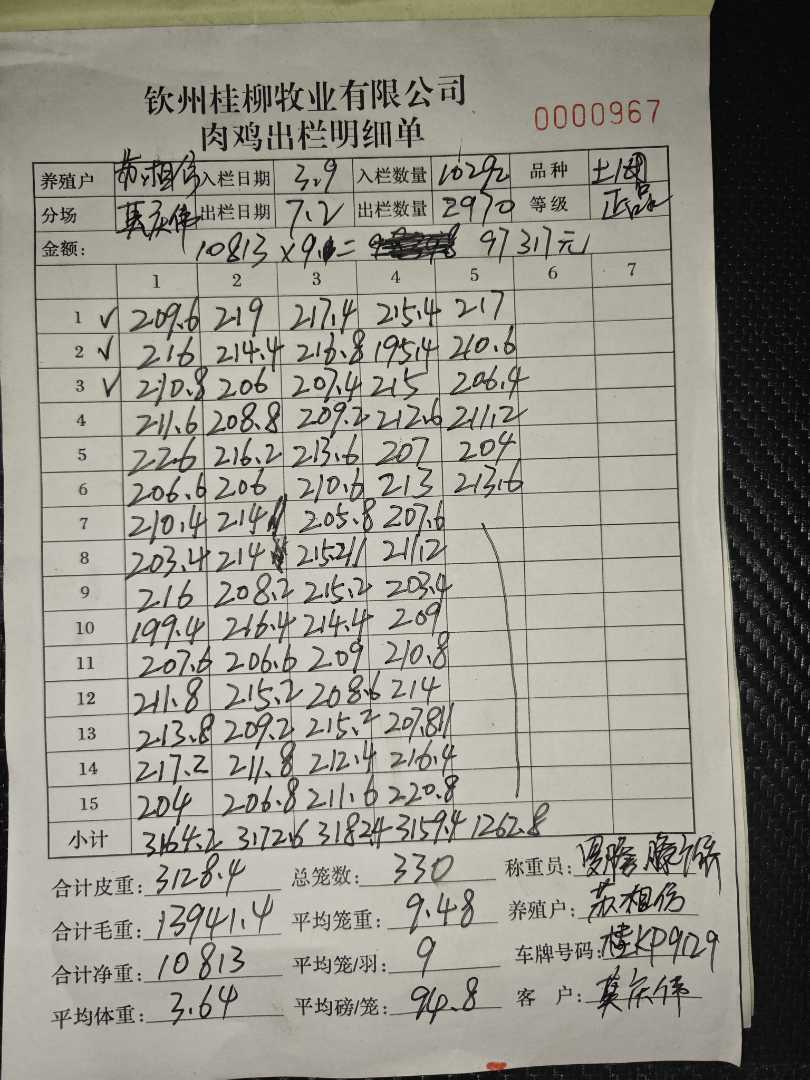 钦州桂柳牧业有限公司
肉鸡出栏明细单
0000967
养殖户 苏相伤 入栏日期 3.9 入栏数量 10292 品种 土
分场 莫庆伟 出栏日期 7.2 出栏数量 2970 等级 正品
金额: 10813×9= 97317元
1 2 3 4 5 6 7
1 √ 209.6 219 217.4 215.4 217
2 √ 216 214.4 216.8 195.4 210.6
3 √ 210.8 206 207.4 215 206.4
4 211.6 208.8 209.2 212.6 211.2
5 226 216.2 213.6 207 204
6 206.6 206 210.6 213 213.6
7 210.4 214 205.8 207.6
8 203.4 214 215.2 211.2
9 216 208.2 215.2 203.4
10 199.4 216.4 214.4 209
11 207.6 206.6 209 210.8
12 211.8 215.2 208.6 214
13 213.8 209.2 215.2 207.8
14 217.2 211.8 212.4 216.4
15 204 206.8 211.6 220.8
小计 3164.2 3172.6 3182.4 3159.4 1262.8
合计皮重: 3128.4 总笼数: 330 称重员:
合计毛重: 13941.4 平均笼重: 9.48 养殖户: 苏相伤
合计净重: 10813 平均笼/羽: 9 车牌号码: 桂KP9129
平均体重: 3.64 平均磅/笼: 94.8 客 户: 莫庆伟